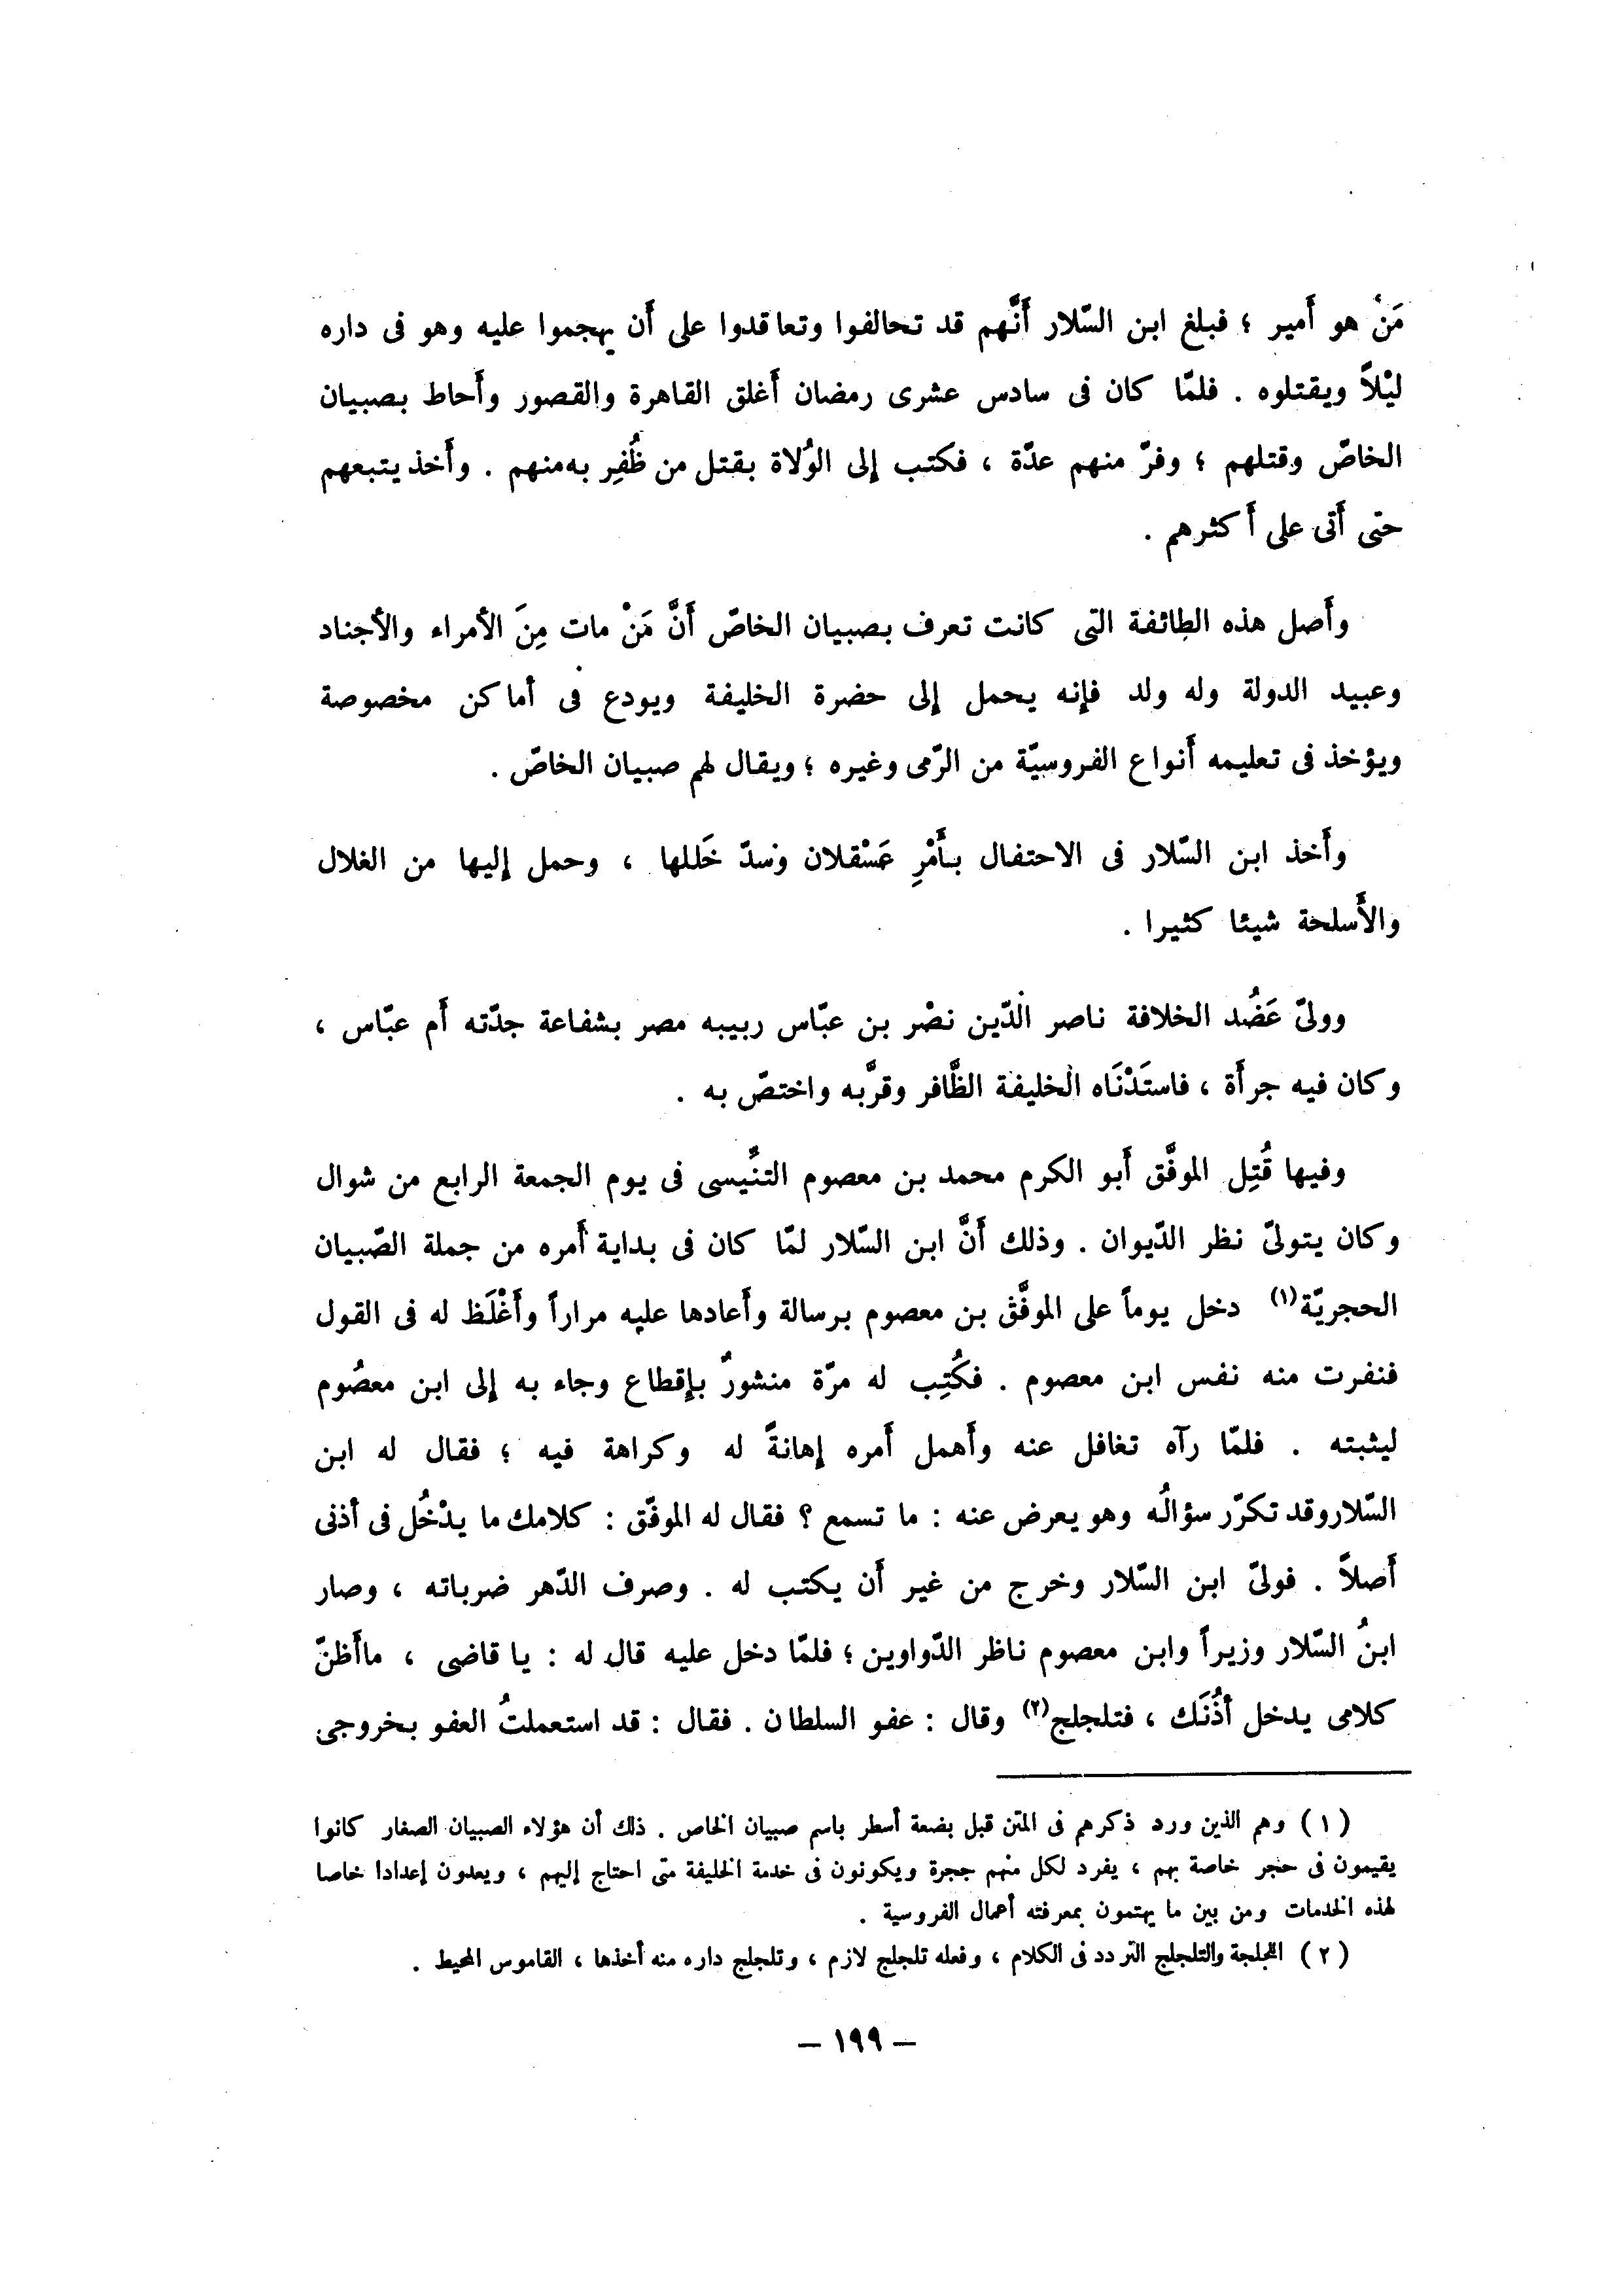 مَنْ هو أَمير ؛ فبلغ ابن السّلار أَنَّهم قد تحالفوا وتعاقدوا على أَن يهجموا عليه وهو فى داره
ليْلاً ويقتلوه . فلمّا كان فى سادس عشرى رمضان أَغلق القاهرة والقصور وأَحاط بصبيان
الخاصّ وقتلهم ؛ وفرّ منهم عدّة ، فكتب إلى الوُلاة بقتل من ظُفِر به منهم . وأَخذ يتبعهم
حتى أَتى على أَكثرهم .
وأَصل هذه الطائفة التى كانت تعرف بصبيان الخاصّ أَنَّ مَنْ مات مِنَ الأمراء والأجناد
وعبيد الدولة وله ولد فإنه يحمل إلى حضرة الخليفة ويودع فى أماكن مخصوصة
ويؤخذ فى تعليمه أَنواع الفروسيّة من الرّمى وغيره ؛ ويقال لهم صبيان الخاصّ .
وأَخذ ابن السّلار فى الاحتفال بأَمْرِ عَسْقلان وسدّ خَللها ، وحمل إليها من الغلال
والأَسلحة شيئا كثيرا .
وولىّ عَضُد الخلافة ناصر الدّين نصْر بن عبّاس ربيبه مصر بشفاعة جدّته أَم عبّاس ،
وكان فيه جرأَة ، فاستَدْنَاه الخليفة الظَّافر وقرَّبه واختصّ به .
وفيها قُتِل الموفَّق أَبو الكرم محمد بن معصوم التنَّيسى فى يوم الجمعة الرابع من شوال
وكان يتولىّ نظر الدّيوان . وذلك أَنَّ ابن السّلار لمّا كان فى بداية أَمره من جملة الصّبيان
الحجريّة(١) دخل يوماً على الموفَّق بن معصوم برسالة وأَعادها عليه مراراً وأَغْلَظ له فى القول
فنفرت منه نفس ابن معصوم . فكُتِب له مرّة منشورٌ بإقطاع وجاء به إلى ابن معصُوم
ليثبته . فلمّا رآه تغافل عنه وأَهمل أَمره إهانةً له وكراهة فيه ؛ فقال له ابن
السّلار وقد تكرّر سؤالُه وهو يعرض عنه : ما تسمع ؟ فقال له الموفّق : كلامك ما يدْخُل فى أذنى
أَصلاً . فولىّ ابن السّلار وخرج من غير أَن يكتب له . وصرف الدّهر ضرباته ، وصار
ابنُ السّلار وزيراً وابن معصوم ناظر الدّواوين ؛ فلمّا دخل عليه قال له : يا قاضى ، ما أَظنّ
كلامى يدخل أذُنَك ، فتلجلج(٢) وقال : عفو السلطان . فقال : قد استعملتُ العفو بخروجى
(١) وهم الذين ورد ذكرهم فى المتن قبل بضعة أسطر باسم صبيان الخاص . ذلك أن هؤلاء الصبيان الصغار كانوا
يقيمون فى حجر خاصة بهم ، يفرد لكل منهم حجرة ويكونون فى خدمة الخليفة متى احتاج إليهم ، ويعدون إعدادا خاصا
لهذه الخدمات ومن بين ما يهتمون بمعرفته أعمال الفروسية .
(٢) اللجلجة والتلجلج التردد فى الكلام ، وفعله تلجلج لازم ، وتلجلج داره منه أخذها ، القاموس المحيط .
– ١٩٩ –